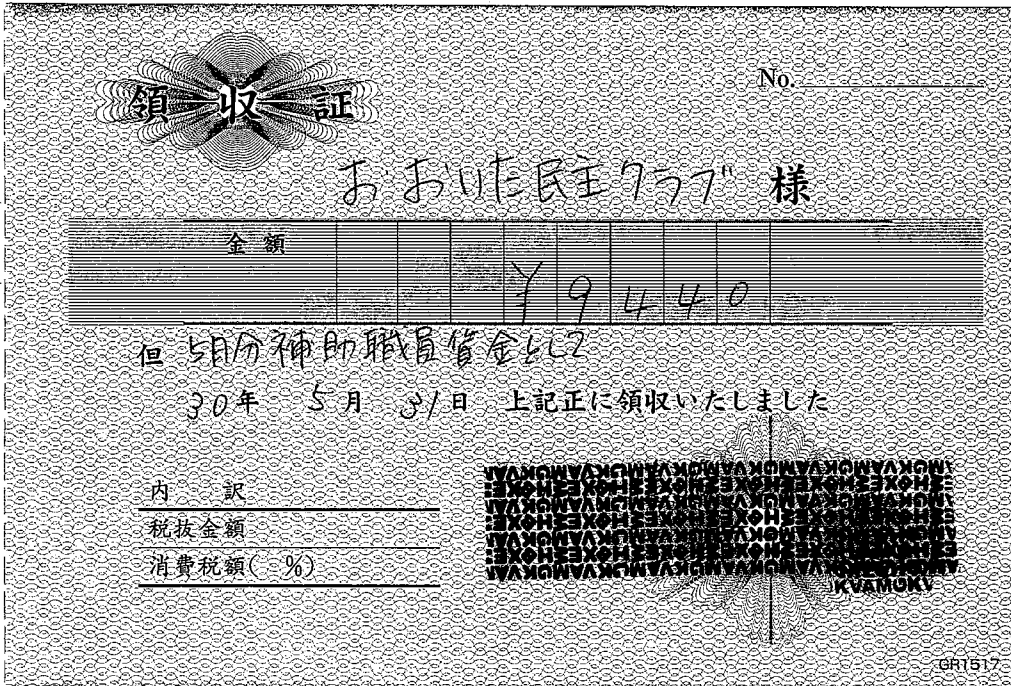 領収証
No.
おおいた民主クラブ 様
金額 ¥9440
但 5月分補助職員賃金として
30年 5月 31日 上記正に領収いたしました
内訳
税抜金額
消費税額( %)
GR1517